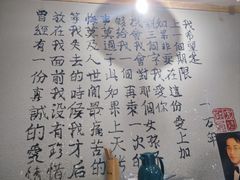 曾經有一份真誠的愛情
放在我面前我沒有珍惜
等我失去的時候我才后
悔莫及人世間最痛苦的
事莫過于此如果上天能
够給我一個再來一次的
機會我會對那個女孩
說三個字我愛你
如果非要在這份愛上加
上一個期限
我希望是
一万年